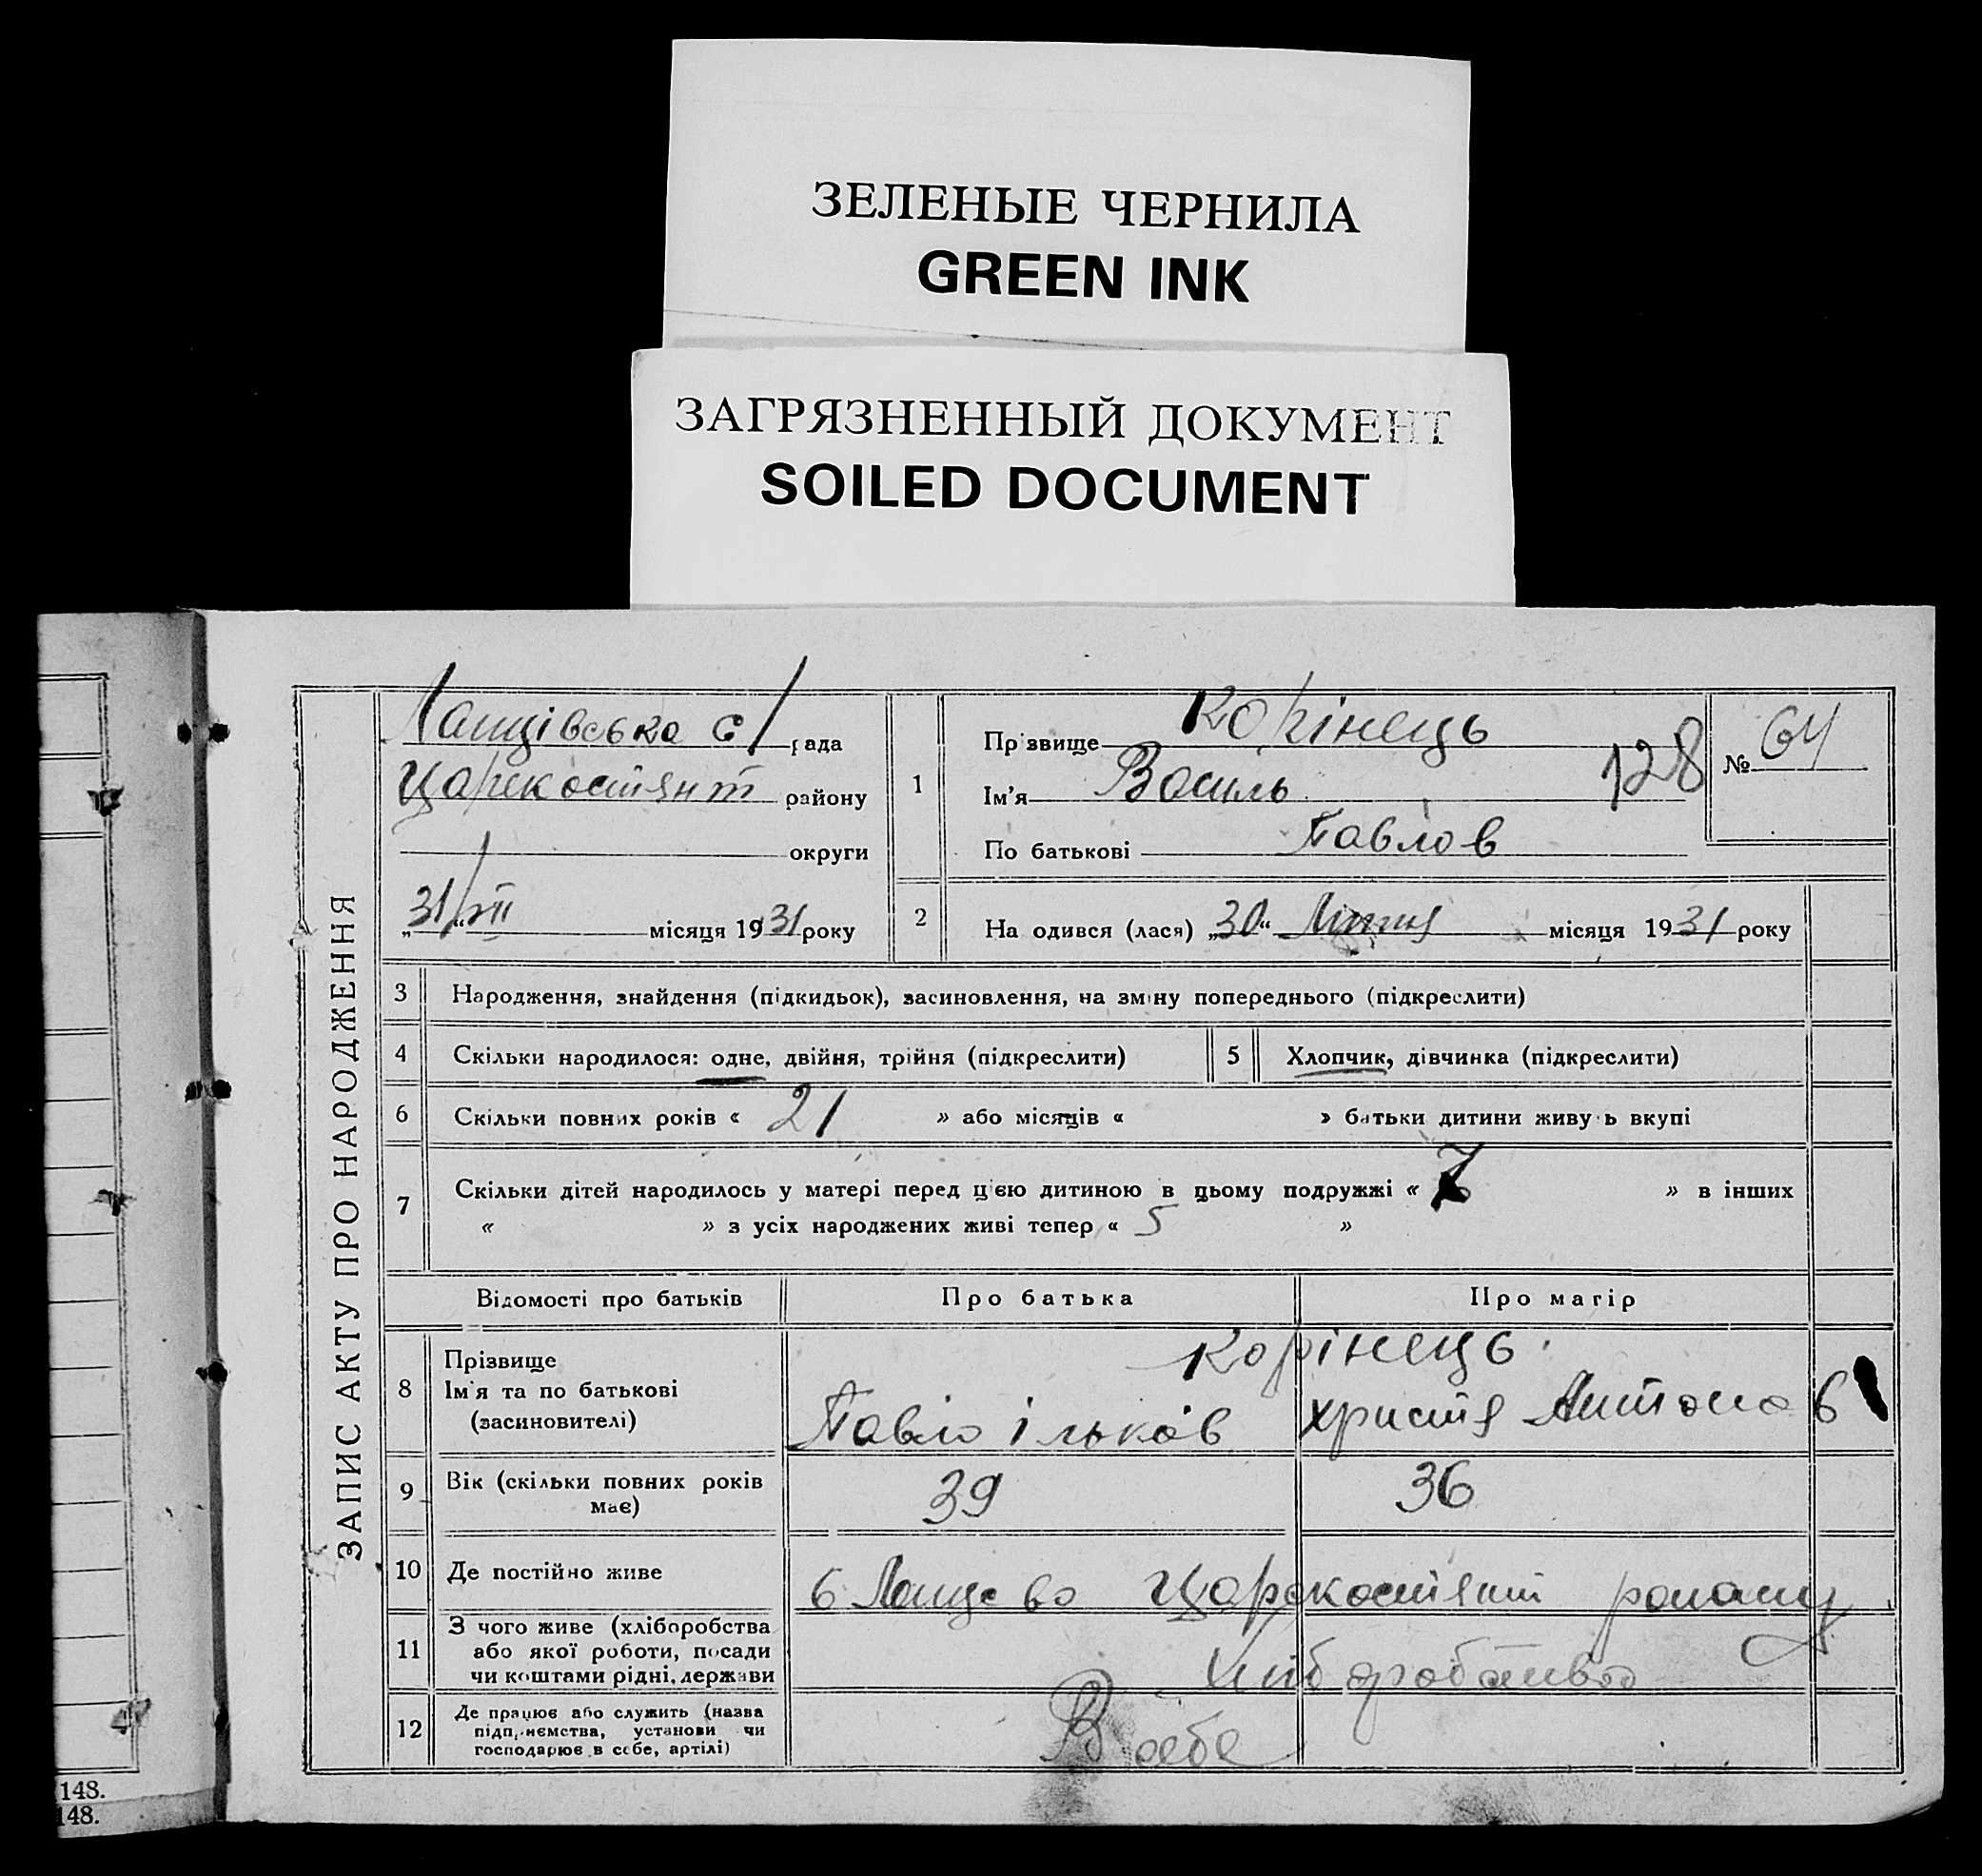 ЗЕЛЕНЫЕ ЧЕРНИЛА
GREEN INK
ЗАГРЯЗНЕННЫЙ ДОКУМЕНТ
SOILED DOCUMENT
ЗАПИС АКТУ ПРО НАРОДЖЕННЯ
Лащівська с/рада
Царекостянт району
округи
„31/VII“ місяця 1931 року
1
Прізвище Корінець
Ім'я Василь 128
По батькові Павлов
№ 64
2 На одився (лася) „30“ Липня місяця 1931 року
3 Народження, знайдення (підкидьок), засиновлення, на зміну попереднього (підкреслити)
4 Скільки народилося: одне, двійня, трійня (підкреслити) 5 Хлопчик, дівчинка (підкреслити)
6 Скільки повних років « 21 » або місяців « » батьки дитини живу ь вкупі
7 Скільки дітей народилось у матері перед цією дитиною в цьому подружжі « 7 » в інших
« » з усіх народжених живі тепер « 5 »
Відомості про батьків Про батька Про матір
8 Прізвище Корінець
Ім'я та по батькові Павло Ільков Христя Антонов
(засиновителі)
9 Вік (скільки повних років має) 39 36
10 Де постійно живе в Лащево Царекостянт району
11 З чого живе (хліборобства або якої роботи, посади чи коштами рідні, держави Хліборобством
12 Де працює або служить (назва підприємства, установи чи господарює в себе, артілі) В себе
148.
148.